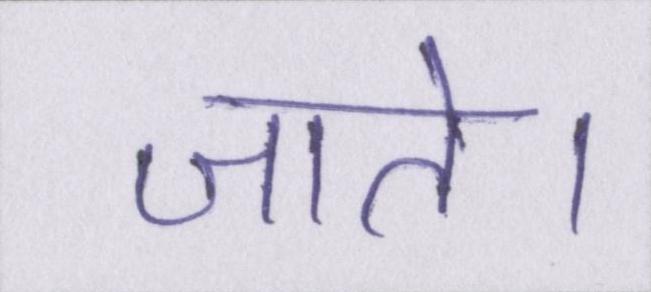 जाते।